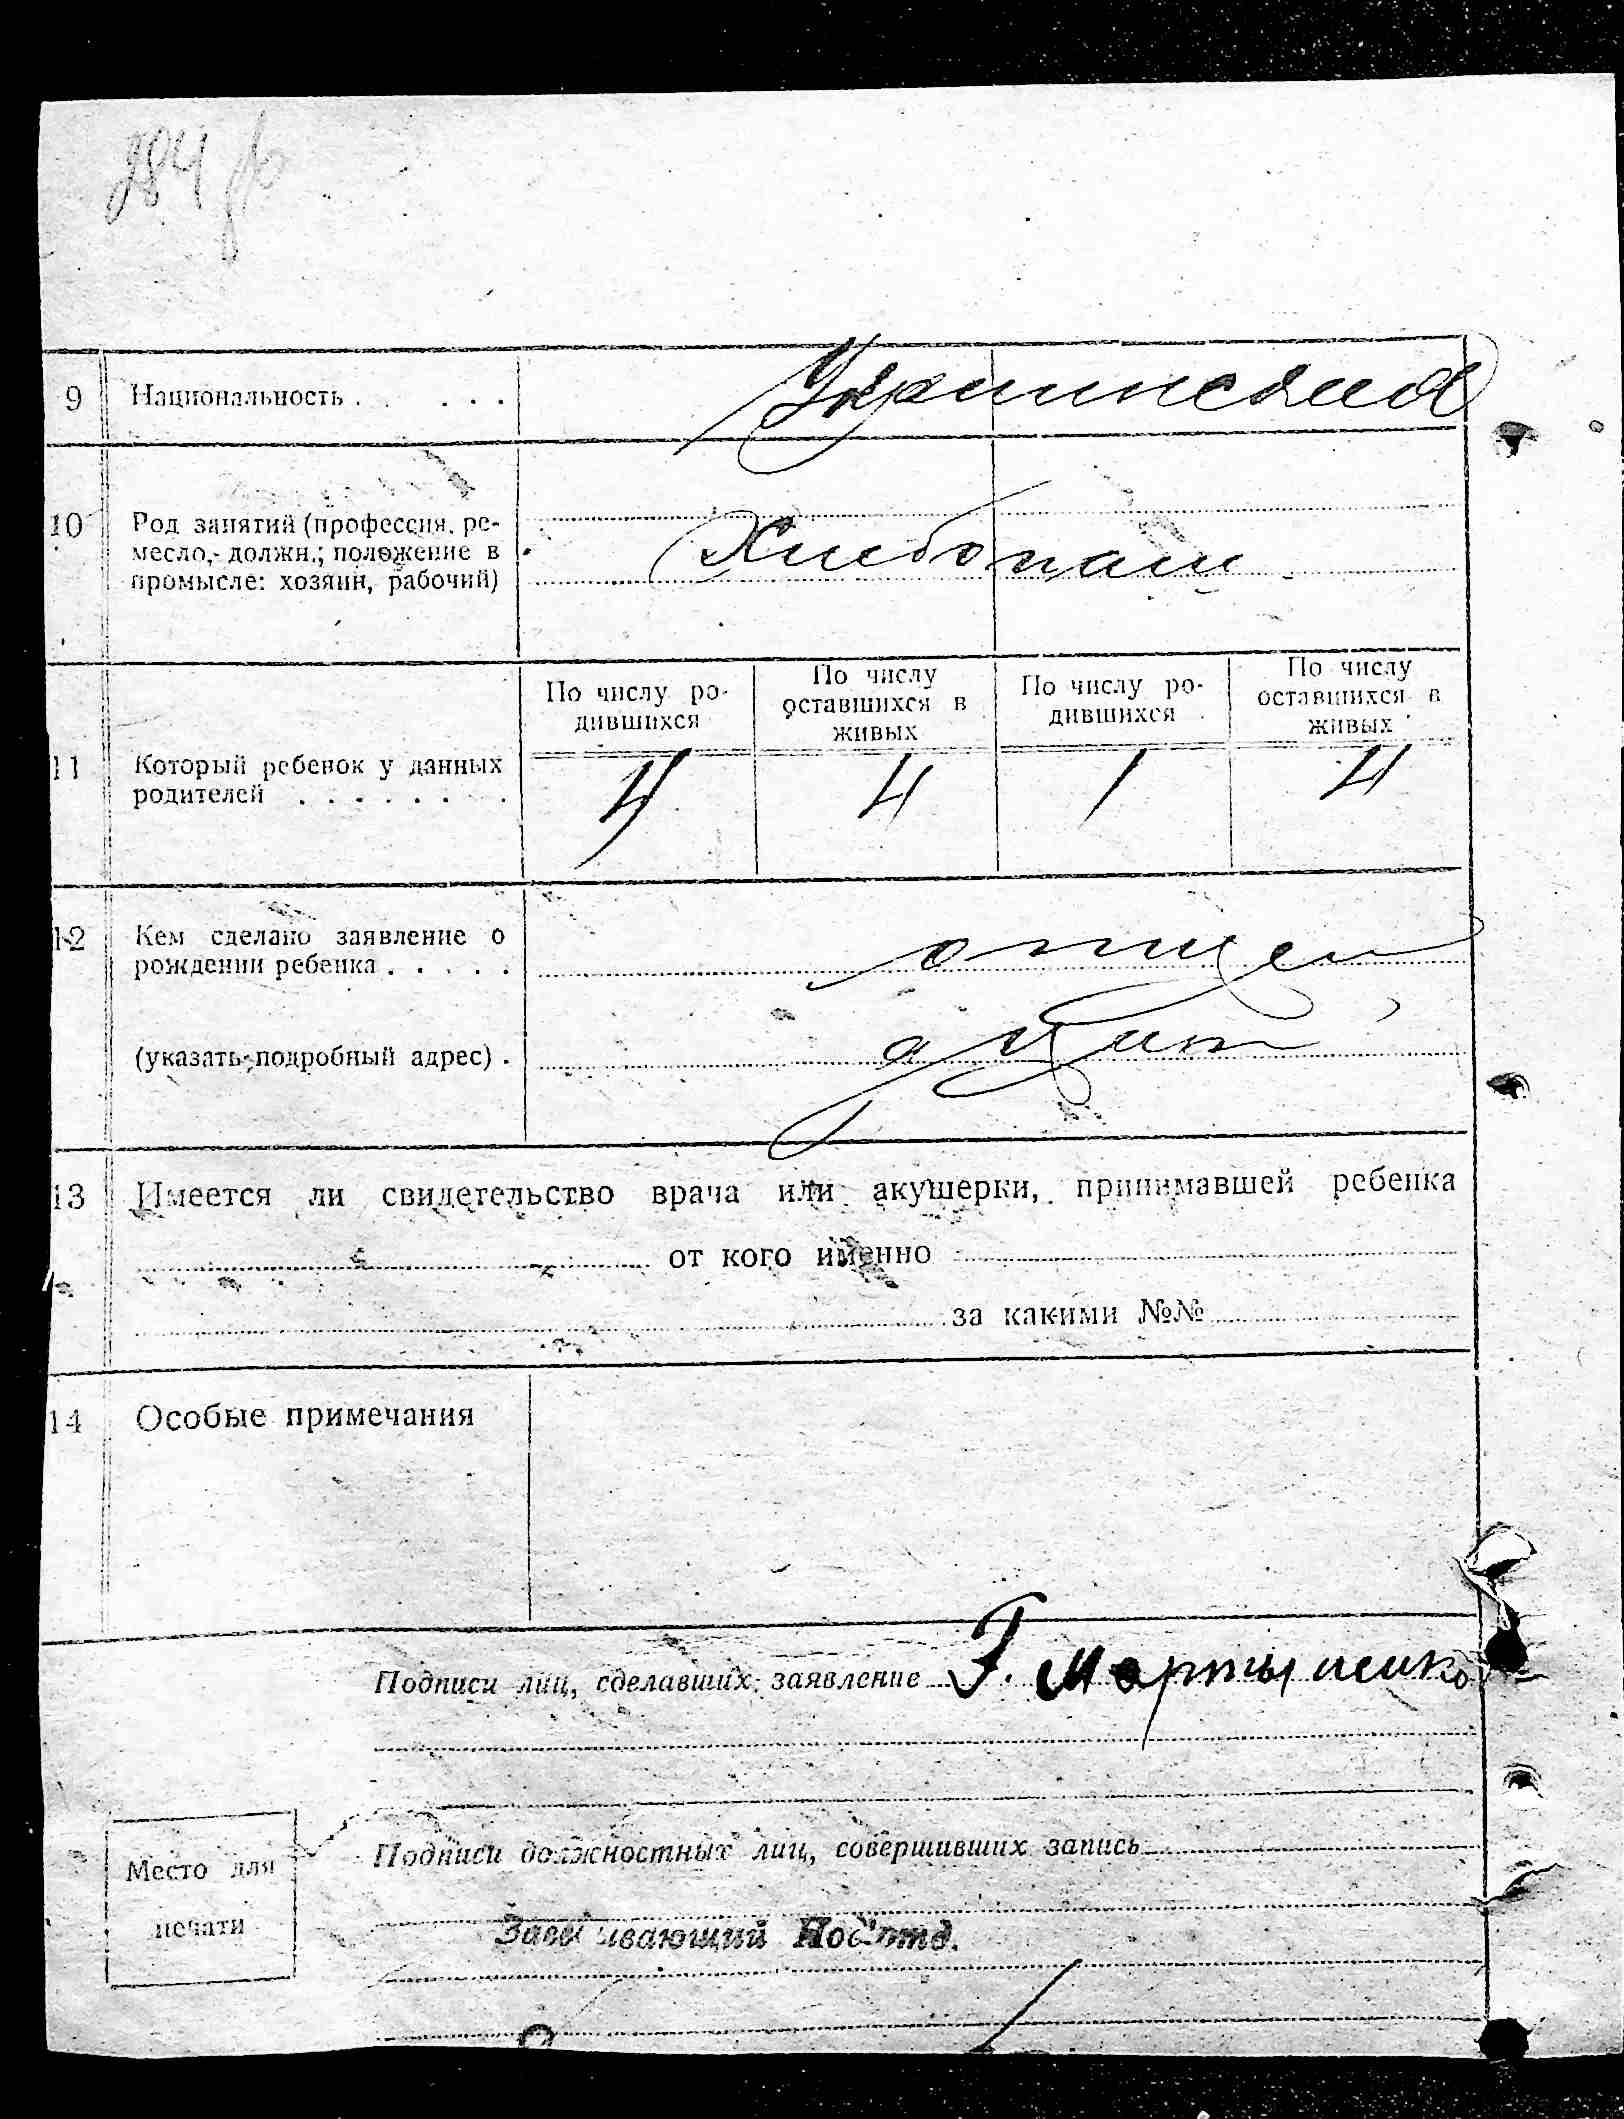 284
9 Национальность . . . . . Украинская
10 Род занятий (профессия, ре-
месло, должн.; положение в
промысле: хозяин, рабочий)
Хлебопаш
11 Который ребенок у данных
родителей . . . . . . . .
По числу ро-
дившихся
4
По числу
оставшихся в
живых
4
По числу ро-
дившихся
1
По числу
оставшихся в
живых
4
12 Кем сделано заявление о
рождении ребенка . . . . .
отцем
(указать подробный адрес) .
13 Имеется ли свидетельство врача или акушерки, принимавшей ребенка
от кого именно
за какими №№
14 Особые примечания
Подписи лиц, сделавших заявление Г. Мартыненко
Подписи должностных лиц, совершивших запись
Место для
печати